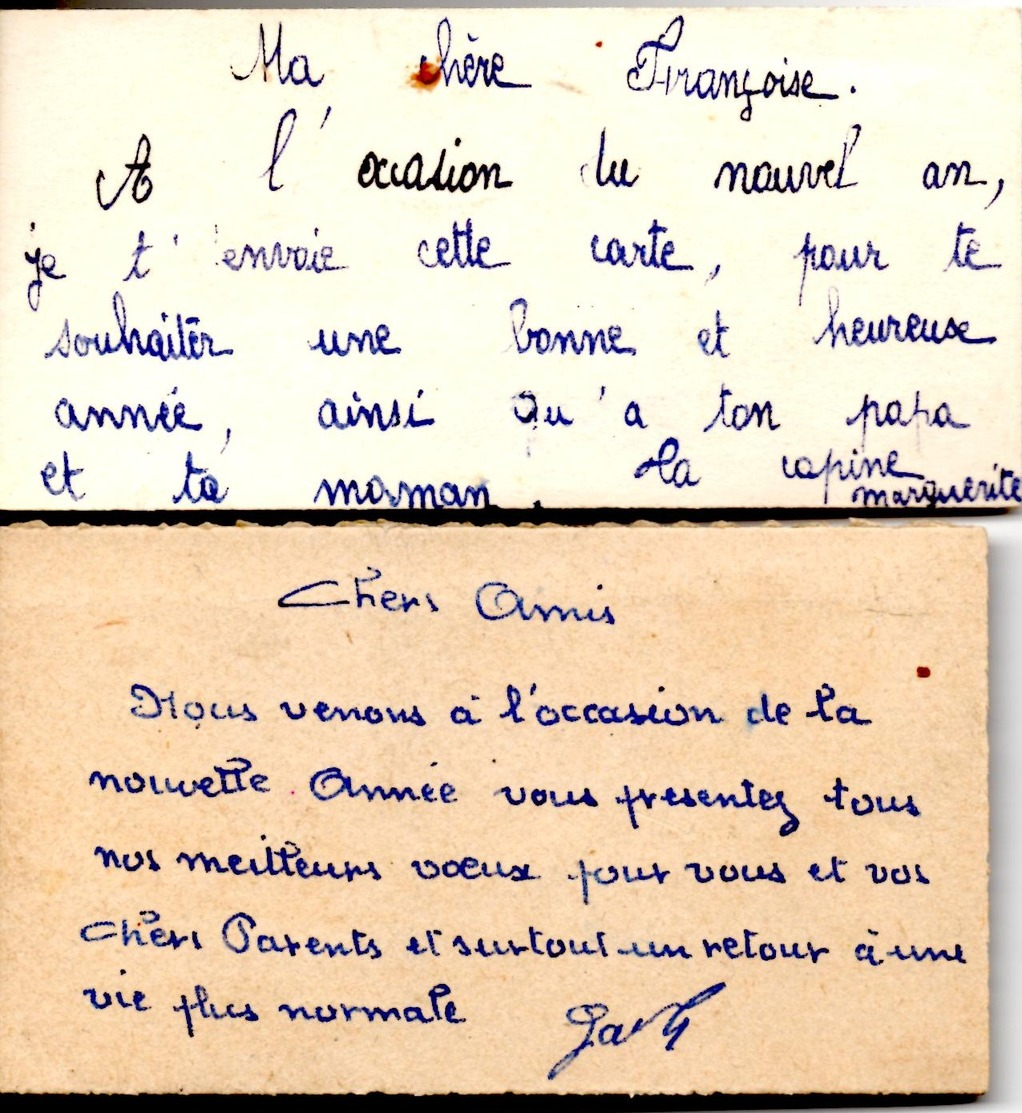 Ma chère Françoise.
A l'occasion du nouvel an,
je t'envoie cette carte, pour te
souhaiter une bonne et heureuse
année, ainsi qu'a ton papa
et ta maman. Ta copine
marguerite
Chers Amis
Nous venons à l'occasion de la
nouvelle Année vous presentez tous
nos meilleurs vœux pour vous et vos
chers Parents et surtout un retour à une
vie plus normale